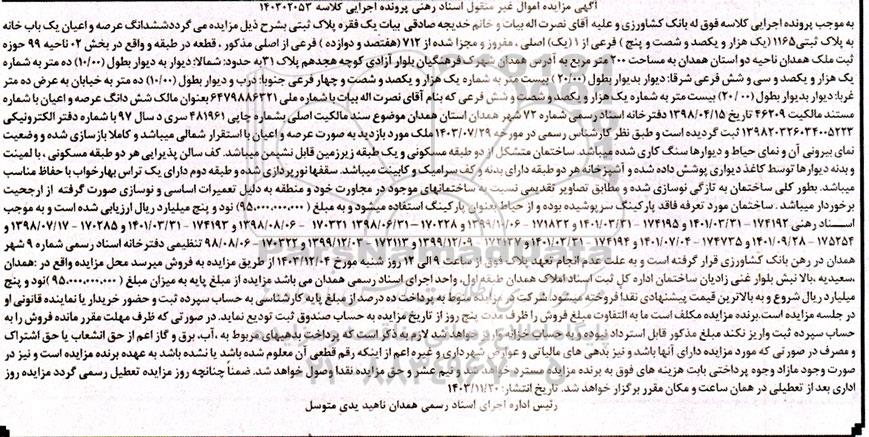 آگهی مزایده اموال غیر منقول اسناد رهنی پرونده اجرایی کلاسه ۱۴۰۳۰۲۰۵۳
به موجب پرونده اجرایی کلاسه فوق له بانک کشاورزی و علیه آقای نصرت اله بیات و خانم خدیجه صادقی بیات یک فقره پلاک ثبتی بشرح ذیل مزایده می گرددششدانگ عرصه و اعیان یک باب خانه
به پلاک ثبتی ۱۱۶۵ (یک هزار و یکصد و شصت و پنج) فرعی از ۱ (یک) اصلی ، مفروز و مجزا شده از ۷۱۲ (هفتصد و دوازده ) فرعی از اصلی مذکور ، قطعه در طبقه و واقع در بخش ۰۲ ناحیه ۹۹ حوزه
ثبت ملک همدان ناحیه دو استان همدان به مساحت ۲۰۰ متر مربع به آدرس همدان شهرک فرهنگیان بلوار آزادی کوچه هجدهم پلاک ۳۱ به حدود: شمالا: دیوار به دیوار بطول (۱۰/۰۰) ده متر به شماره
یک هزار و یکصد و سی و شش فرعی شرقا: دیوار بدیوار بطول (۲۰/۰۰) بیست متر به شماره یک هزار و یکصد و شصت و چهار فرعی جنوبا: درب و دیوار بطول (۱۰/۰۰) ده متر به خیابان به عرض ده متر
غربا: دیوار بدیوار بطول (۲۰/۰۰) بیست متر به شماره یک هزار و یکصد و شصت و شش فرعی که بنام آقای نصرت اله بیات با شماره ملی ۶۴۷۹۸۸۶۲۲۱ بعنوان مالک شش دانگ عرصه و اعیان با شماره
مستند مالکیت ۴۶۲۰۹ تاریخ ۱۳۹۸/۰۴/۱۵ دفترخانه اسناد رسمی شماره ۷۲ شهر همدان استان همدان موضوع سند مالکیت اصلی بشماره چاپی ۴۸۱۹۶۱ سری د سال ۹۷ با شماره دفتر الکترونیکی
۱۳۹۸۲۰۳۲۶۰۳۴۰۰۵۲۲۳ ثبت گردیده است و طبق نظر کارشناس رسمی در مورخه ۱۴۰۳/۰۷/۲۹ ملک مورد بازدید به صورت عرصه و اعیان با استقرار شمالی میباشد و کاملا بازسازی شده و وضعیت
نمای بیرونی آن و نمای حیاط و دیوارها سنگ کاری شده میباشد. ساختمان متشکل از دو طبقه مسکونی و یک طبقه زیرزمین قابل نشیمن میباشد. کف سالن پذیرایی هر دو طبقه مسکونی ، با لمینت
و بدنه دیوارها توسط کاغذ دیواری پوشش داده شده و آشپزخانه هر دو طبقه دارای بدنه و کف سرامیک و کابینت میباشد. سقفها نورپردازی شده و طبقه دوم دارای یک تراس بهارخواب با حفاظ مناسب
میباشد. بطور کلی ساختمان به تازگی نوسازی شده و مطابق تصاویر تقدیمی نسبت به ساختمانهای موجود در مجاورت خود و منطقه به دلیل تعمیرات اساسی و نوسازی صورت گرفته از ارجحیت
برخوردار میباشد. ساختمان مورد تعرفه فاقد پارکینگ سرپوشیده بوده و از حیاط بعنوان پارکینگ استفاده میشود و به مبلغ (۹۵.۰۰۰.۰۰۰.۰۰۰) نود و پنج میلیارد ریال ارزیابی شده است و به موجب
اسـناد رهنی ۱۷۴۱۹۲ - ۱۴۰۱/۰۳/۳۱ - ۱۷۴۱۹۵ - ۱۴۰۱/۰۳/۳۱ - ۱۷۱۸۳۲ - ۱۳۹۹/۱۰/۰۶ - ۱۷۰۲۲۸ - ۱۳۹۸/۰۶/۳۱ ۱۷۰۳۳۱ - ۱۳۹۸/۰۸/۰۶ - ۱۷۴۱۹۳ - ۱۴۰۱/۰۳/۳۱ - ۱۷۰۲۸۵ - ۱۳۹۸/۰۷/۱۷ -
۱۷۵۲۵۴ - ۱۴۰۱/۰۹/۲۸ - ۱۷۴۷۳۵ - ۱۴۰۱/۰۷/۰۴ - ۱۷۴۱۹۴ - ۱۴۰۱/۰۳/۳۱ - ۱۷۲۱۲۷ - ۱۳۹۹/۱۲/۰۹ - ۱۷۲۱۱۳ - ۱۳۹۹/۱۲/۰۳ - ۱۷۰۳۳۲ - ۹۸/۰۸/۰۶ تنظیمی دفترخانه اسناد رسمی شماره ۹ شهر
همدان در رهن بانک کشاورزی قرار گرفته است و به علت عدم انجام تعهد پلاک فوق از ساعت ۹ الی ۱۲ روز شنبه مورخ ۱۴۰۳/۱۲/۰۴ از طریق مزایده به فروش میرسد محل مزایده واقع در :همدان
،سعیدیه ،بالا نبش بلوار غنی زادیان ساختمان اداره کل ثبت اسناد املاک همدان طبقه اول، واحد اجرای اسناد رسمی همدان می باشد مزایده از مبلغ پایه به میزان مبلغ (۹۵.۰۰۰.۰۰۰.۰۰۰) نود و پنج
میلیارد ریال شروع و به بالاترین قیمت پیشنهادی نقدا فروخته میشود.شرکت در مزایده منوط به پرداخت ده درصد از مبلغ پایه کارشناسی به حساب سپرده ثبت و حضور خریدار یا نماینده قانونی او
در جلسه مزایده است.برنده مزایده مکلف است ما به التفاوت مبلغ فروش را ظرف مدت پنج روز از تاریخ مزایده به حساب صندوق ثبت تودیع نماید. در صورتی که ظرف مهلت مقرر مانده فروش را به
حساب سپرده ثبت واریز نکند مبلغ مذکور قابل استرداد نبوده و به حساب خزانه واریز خواهد شد لازم به ذکر است که پرداخت بدهیهای مربوط به ،آب، برق و گاز اعم از حق انشعاب یا حق اشتراک
و مصرف در صورتی که مورد مزایده دارای آنها باشد و نیز بدهی های مالیاتی و عوارض شهرداری و غیره اعم از اینکه رقم قطعی آن معلوم شده باشد یا نشده باشد به عهده برنده مزایده است و نیز در
صورت وجود مازاد وجوه پرداختی بابت هزینه های فوق به برنده مزایده مسترد خواهد شد و نیم عشر و حق مزایده نقدا وصول خواهد شد. ضمناً چنانچه روز مزایده تعطیل رسمی گردد مزایده روز
اداری بعد از تعطیلی در همان ساعت و مکان مقرر برگزار خواهد شد. تاریخ انتشار: ۱۴۰۳/۱۱/۲۰
رئیس اداره اجرای اسناد رسمی همدان ناهید یدی متوسل